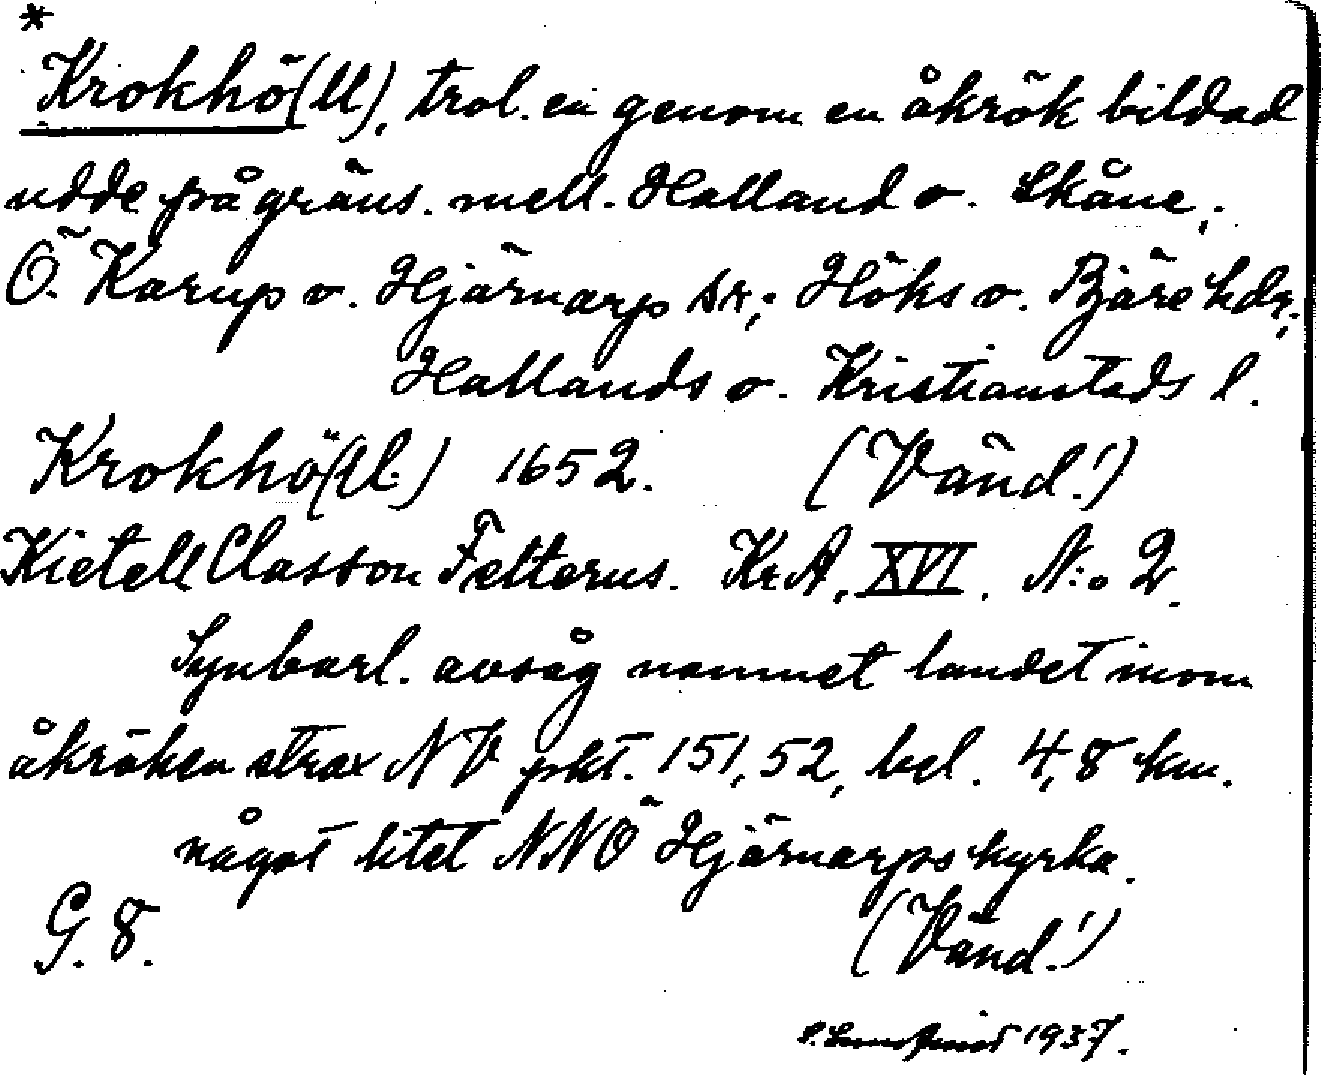 *
Krokhö(ll), trol. en genom en åkrök bildad
udde på gräns. mell. Halland o. Skåne;
Ö. Karup o. Hjärnarp sr; Höks o. Bjäre hdr;
Hallands o. Kristianstads l.
Krokhö(ll.) 1652. (Vänd!)
Kietell Classon Felterus. KrA, XVI. N:o 2.
Synbarl. avsåg namnet landet inom
åkröken strax NV pkt. 151,52, bel. 4,8 km.
något litet NNÖ Hjärnarps kyrka.
G. 8. (Vänd!)
1937.